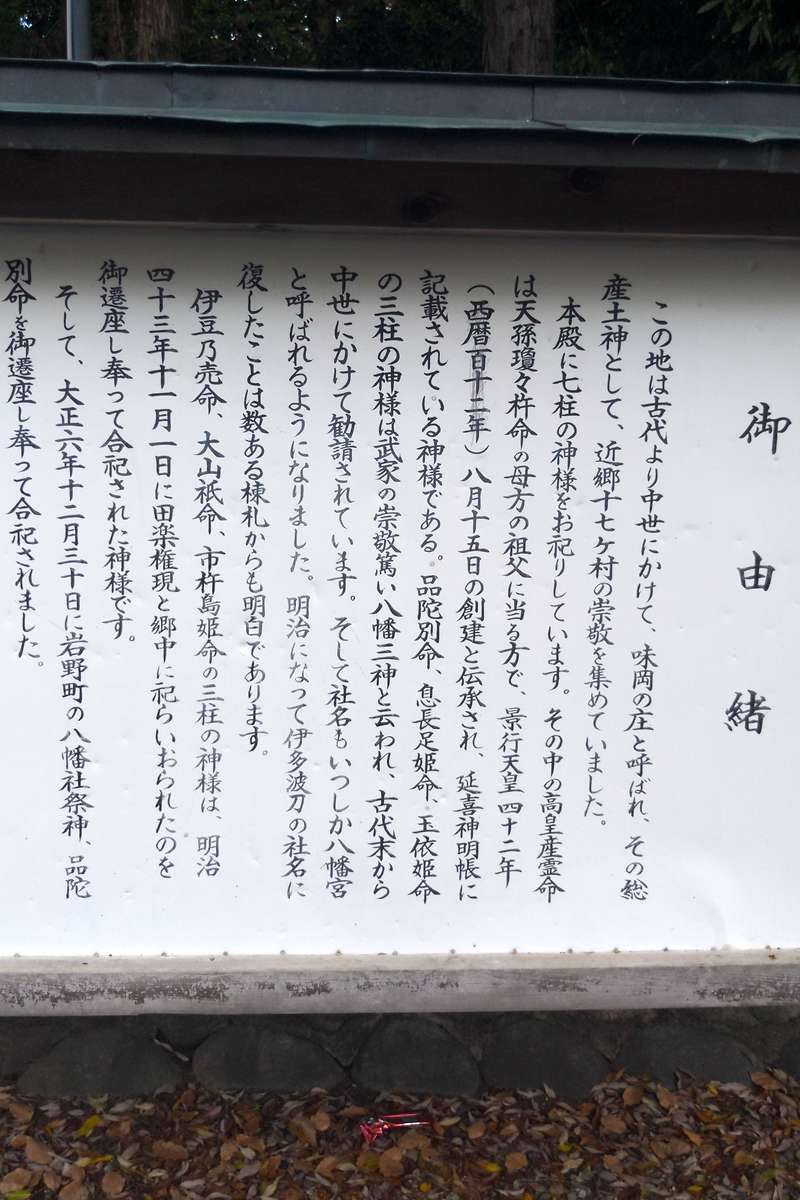 御由緒
この地は古代より中世にかけて、味岡の庄と呼ばれ、その総
産土神として、近郷十七ケ村の崇敬を集めていました。
本殿に七柱の神様をお祀りしています。その中の高皇産霊命
は天孫瓊々杵命の母方の祖父に当る方で、景行天皇四十二年
（西暦百十二年）八月十五日の創建と伝承され、延喜神明帳に
記載されている神様である。品陀別命、息長足姫命、玉依姫命
の三柱の神様は武家の崇敬篤い八幡三神と云われ、古代末から
中世にかけて勧請されています。そして社名もいつしか八幡宮
と呼ばれるようになりました。明治になって伊多波刀の社名に
復したことは数ある棟札からも明白であります。
伊豆乃売命、大山祇命、市杵島姫命の三柱の神様は、明治
四十三年十一月一日に田楽権現と郷中に祀らいおられたのを
御遷座し奉って合祀された神様です。
そして、大正六年十二月三十日に岩野町の八幡社祭神、品陀
別命を御遷座し奉って合祀されました。